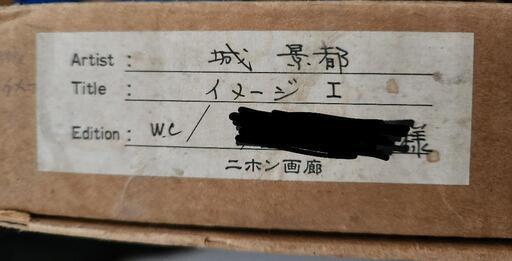 Artist : 城 景都
Title : イメージ I
Edition : W.C / 様
ニホン画廊